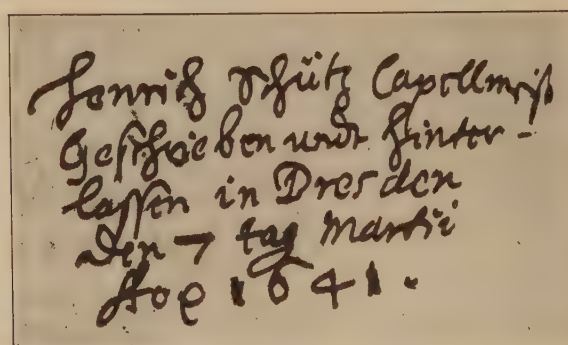 Henrich Schütz Capellmeist
Geschrieben undt hinter-
lassen in Dresden
den 7 tag Martii
Ao 1641.